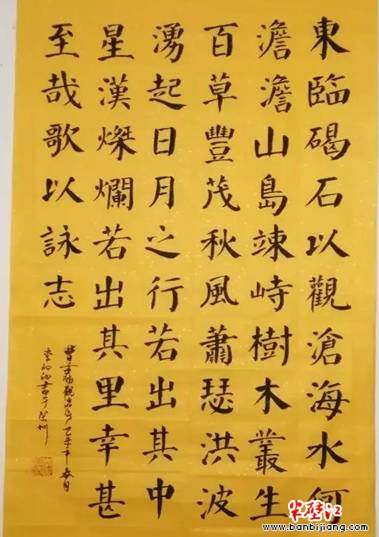 東臨碣石以觀滄海水何
澹澹山島竦峙樹木叢生
百草豐茂秋風蕭瑟洪波
湧起日月之行若出其中
星漢燦爛若出其里幸甚
至哉歌以詠志
乙未年春月
www.banbijiang.com